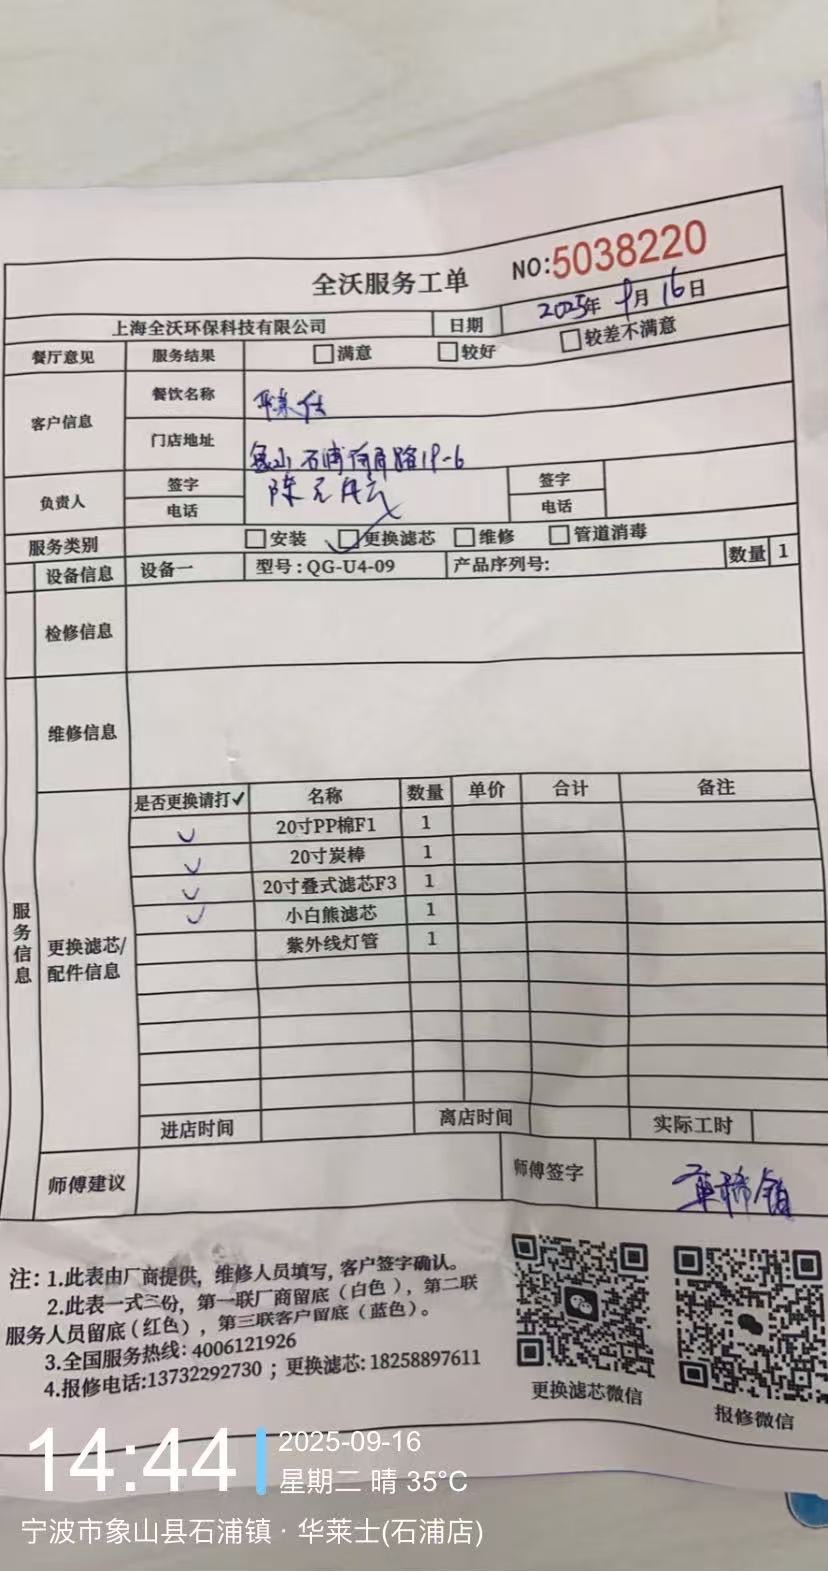 全沃服务工单 NO:5038220
上海全沃环保科技有限公司 日期 2025年 9月 16日
餐厅意见 服务结果 □满意 □较好 □较差不满意
客户信息 餐饮名称 华莱仕
门店地址 象山石浦 路19-6
负责人 签字 陈元 签字
电话 电话
服务类别 □安装 □更换滤芯 □维修 □管道消毒
设备信息 设备一 型号:QG-U4-09 产品序列号: 数量 1
检修信息
维修信息
服务信息
更换滤芯/配件信息
是否更换请打✓ 名称 数量 单价 合计 备注
✓ 20寸PP棉F1 1
✓ 20寸炭棒 1
✓ 20寸叠式滤芯F3 1
✓ 小白熊滤芯 1
紫外线灯管 1
进店时间 离店时间 实际工时
师傅建议 师傅签字
注: 1.此表由厂商提供, 维修人员填写, 客户签字确认。
2.此表一式三份, 第一联厂商留底(白色), 第二联
服务人员留底(红色), 第三联客户留底(蓝色)。
3.全国服务热线: 4006121926
4.报修电话:13732292730 ; 更换滤芯: 18258897611
更换滤芯微信 报修微信
14:44 2025-09-16
星期二 晴 35°C
宁波市象山县石浦镇 · 华莱士(石浦店)